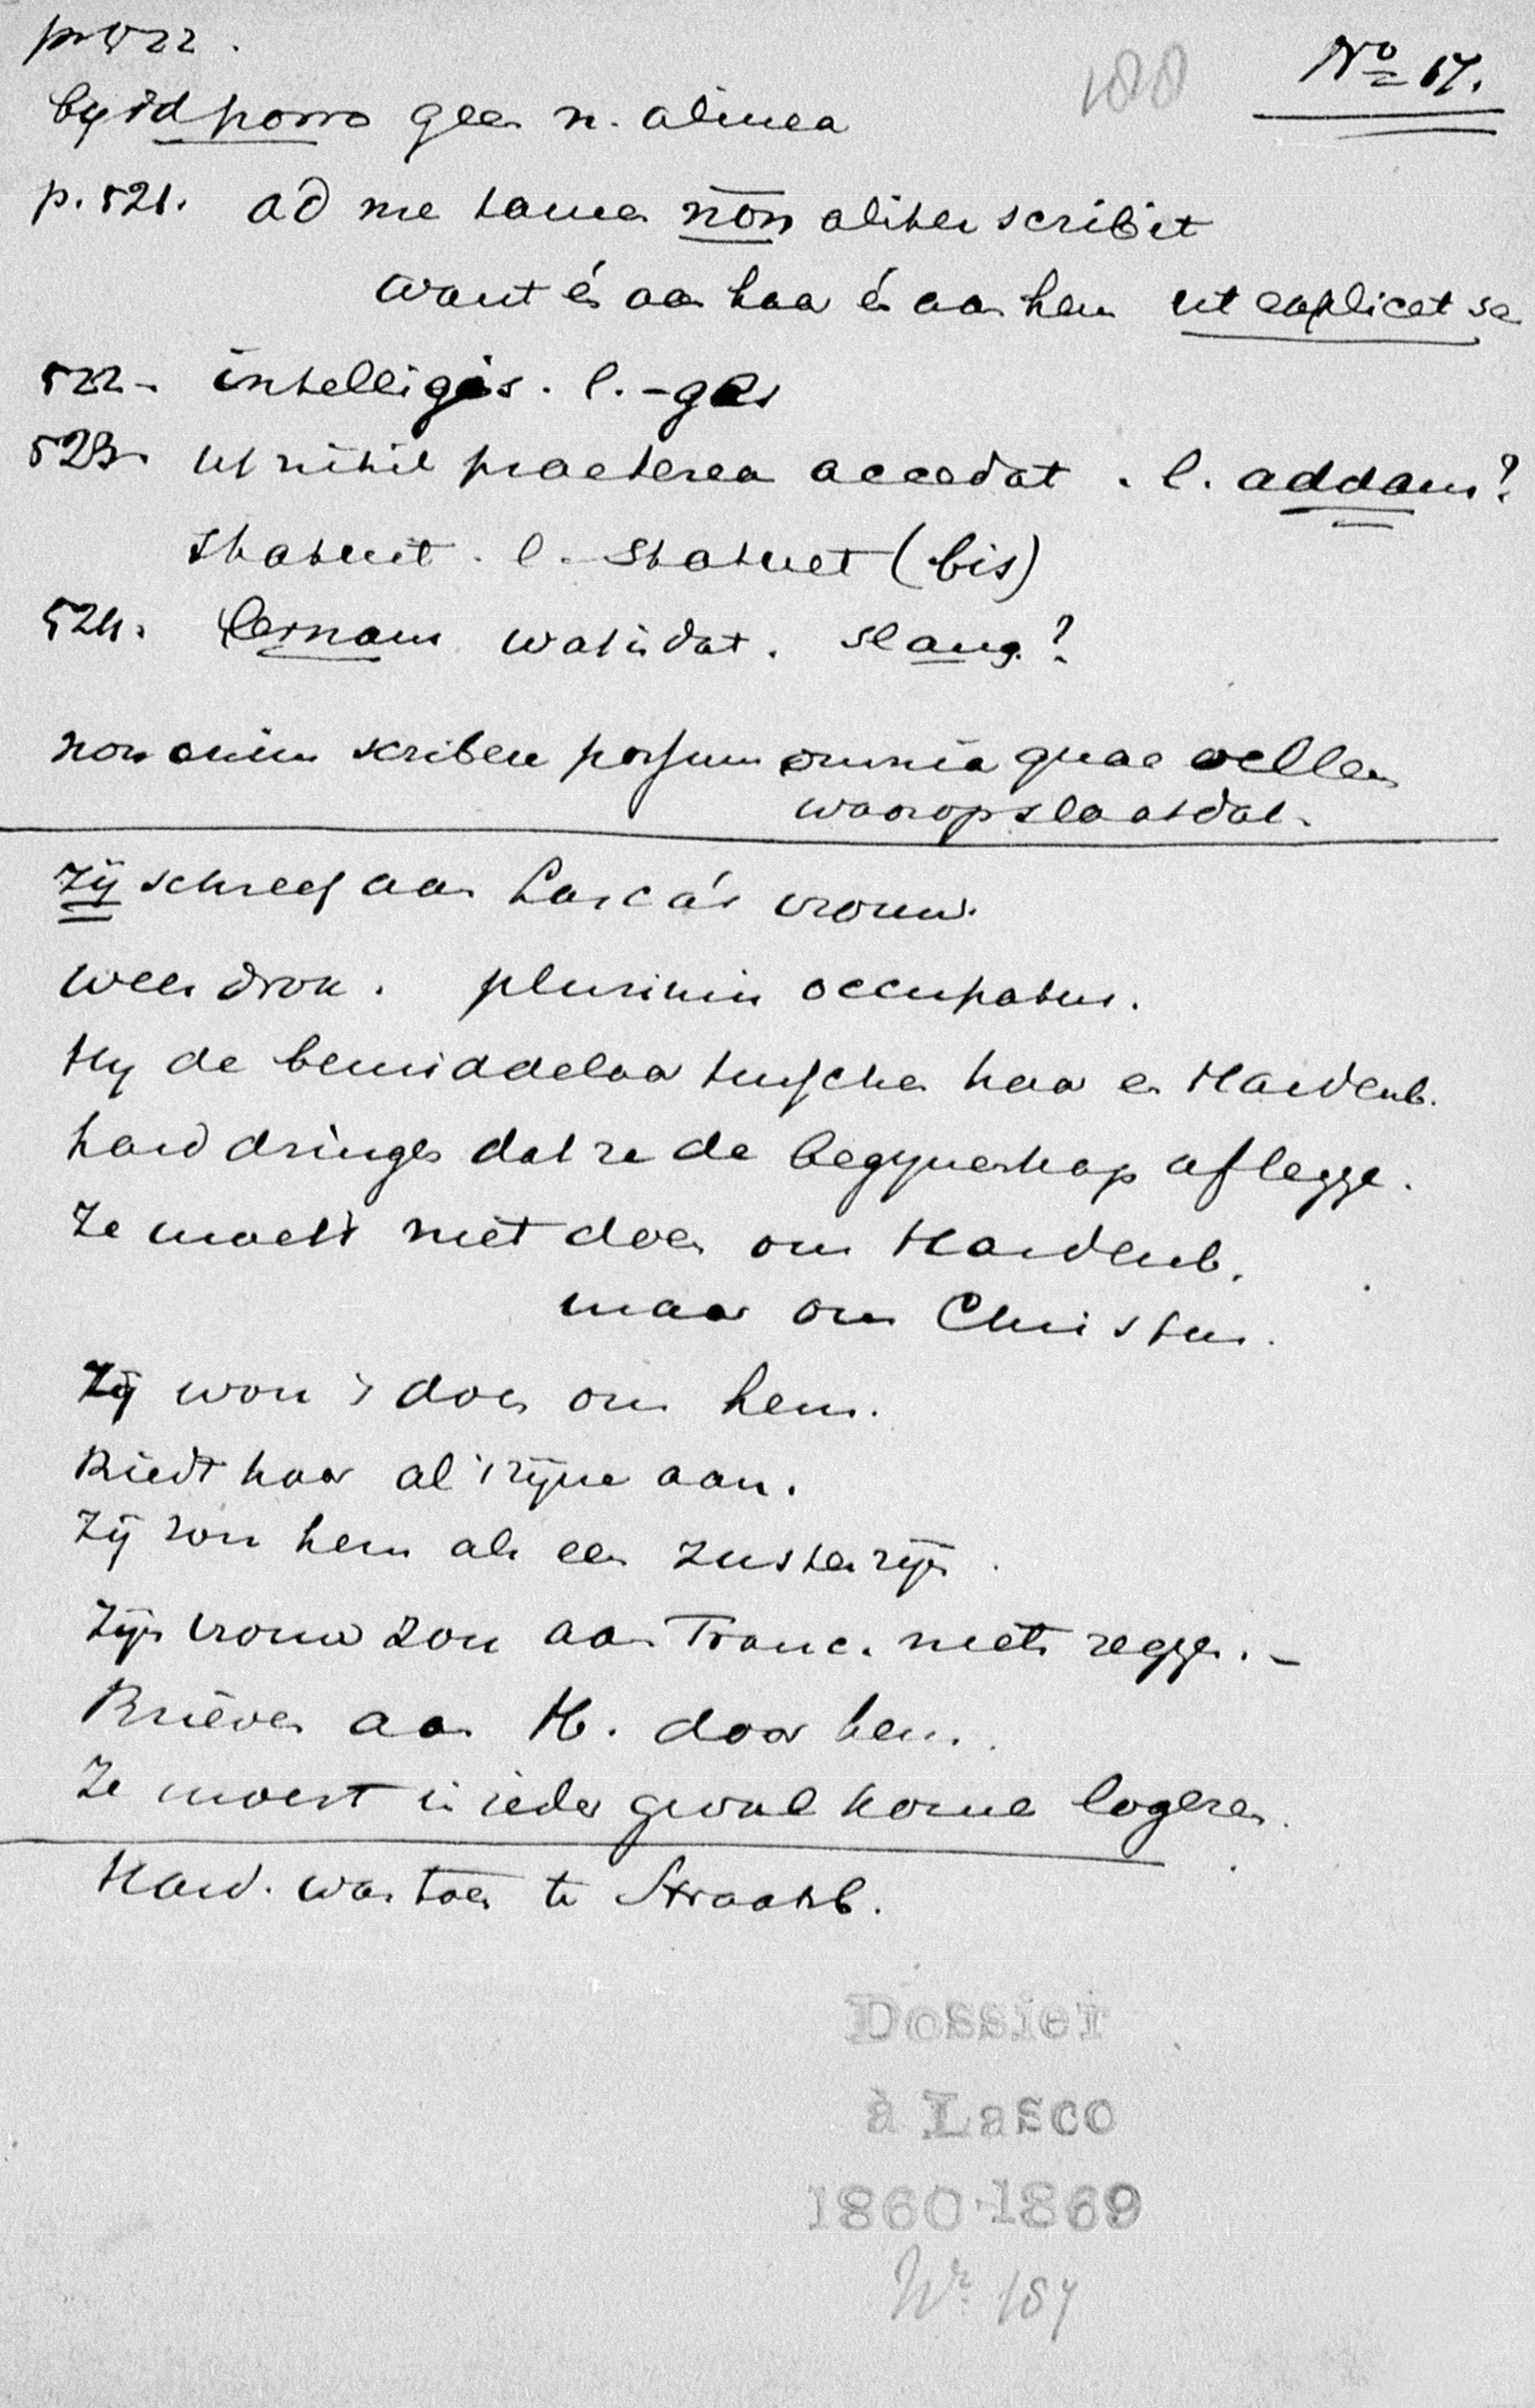 p. 522.
188
No 57.
by id porro geen n. alinea
p. 521. ad me tamen non aliter scribit
want én aan haar én aan hem ut explicet se
522 - intelligis. l. -ges
523. ut nihil praeterea accedat. l. addam?
statuit. l. statuet (bis)
524. Cernam wat is dat. slang?
non enim scribere possum omnia quae vellem
waarop slaat dat.
Zij schreef aan Lasca's vrouw.
Weer druk. plurimis occupatus.
Hy de bemiddelaar tusschen haar en Hardenb.
hard dringen dat ze de begynenkap aflegge.
Ze moest 't niet doen om Hardenb.
maar om Christus.
Zij wou 't doen om hem.
Biedt haar al 't zijne aan.
Zij zou hem als een zuster zijn.
Zijn vrouw zou aan Franc. niets zeggen. -
Brieven aan H. door hem.
Ze moest in ieder geval komen logeren.
Hard. was toen te Straatsb.
Dossier
à Lasco
1860-1869
Nr. 187